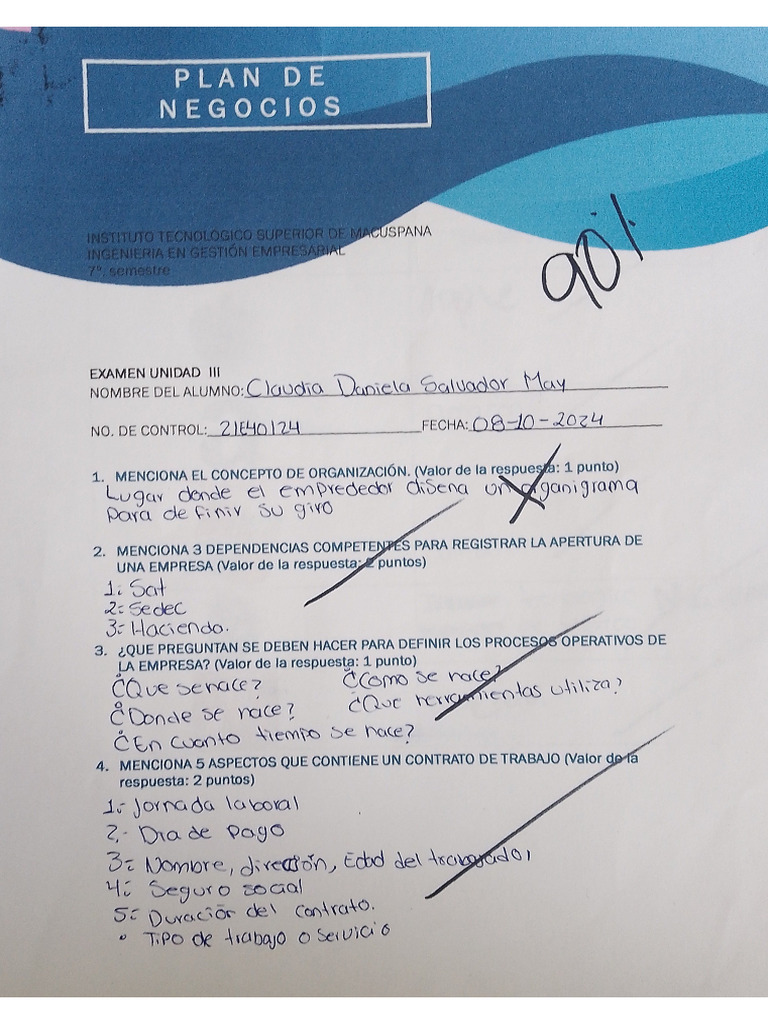 PLAN DE
NEGOCIOS
INSTITUTO TECNOLÓGICO SUPERIOR DE MACUSPANA
INGENIERIA EN GESTIÓN EMPRESARIAL
7°. semestre
90%
EXAMEN UNIDAD III
NOMBRE DEL ALUMNO: Claudia Daniela Salvador May
NO. DE CONTROL: 21E40124 FECHA: 08-10-2024
1. MENCIONA EL CONCEPTO DE ORGANIZACIÓN. (Valor de la respuesta: 1 punto)
Lugar donde el emprededor diseña un organigrama
para definir su giro
2. MENCIONA 3 DEPENDENCIAS COMPETENTES PARA REGISTRAR LA APERTURA DE
UNA EMPRESA (Valor de la respuesta: 2 puntos)
1: Sat
2: Sedec
3: Haciendo.
3. ¿QUE PREGUNTAN SE DEBEN HACER PARA DEFINIR LOS PROCESOS OPERATIVOS DE
LA EMPRESA? (Valor de la respuesta: 1 punto)
¿Que se hace? ¿Como se hace?
¿Donde se hace? ¿Que herramientas utiliza?
¿En cuanto tiempo se hace?
4. MENCIONA 5 ASPECTOS QUE CONTIENE UN CONTRATO DE TRABAJO (Valor de la
respuesta: 2 puntos)
1:- Jornada laboral
2.- Dia de pago
3:- Nombre, dirección, Edad del trabajador
4:- Seguro social
5:- Duración del contrato.
• Tipo de trabajo o servicio